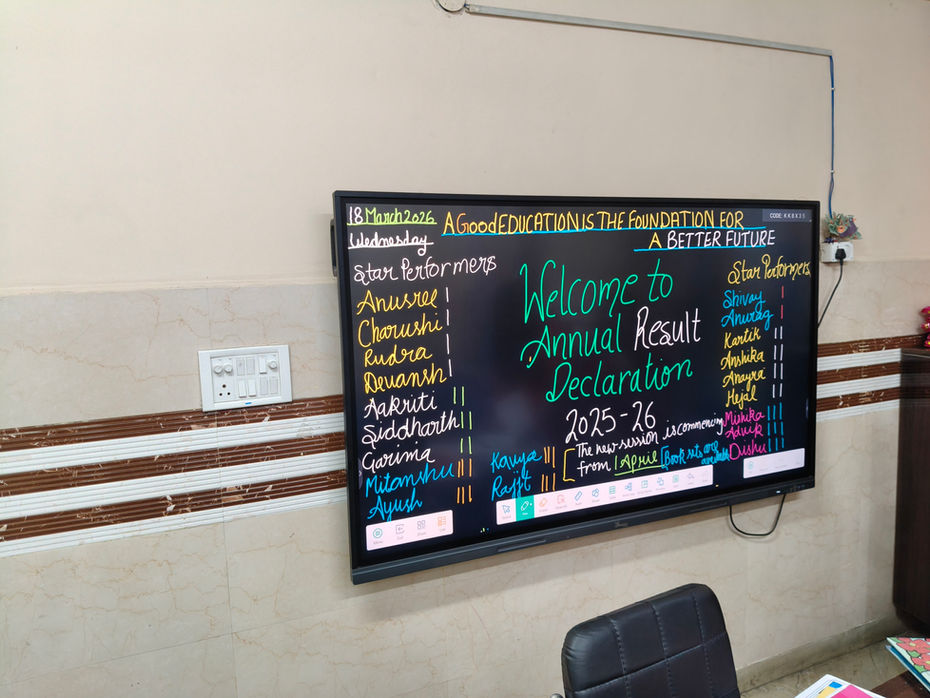 18 March 2026
Wednesday
A Good EDUCATION IS THE FOUNDATION FOR
A BETTER FUTURE
CODE: KK8X35
Star Performers
Anusree |
Charushi |
Rudra |
Devansh |
Aakriti ||
Siddharth ||
Garima ||
Mitanshu |||
Ayush |||
Kavya |||
Rajjt |||
Welcome to
Annual Result
Declaration
2025-26
The new session is commencing
from 1 April
Book sets are
available
Star Performers
Shivay |
Anurag |
Kartik ||
Anshika ||
Anayra ||
Hejal ||
Mishika |||
Advik |||
Dishu |||